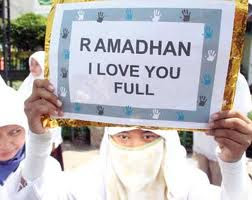 RAMADHAN
I LOVE YOU
FULL